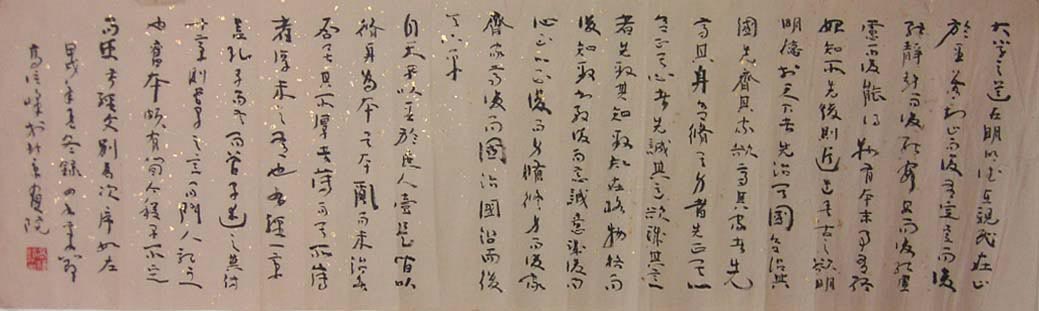 大学之道在明明德在亲民在止
於至善知止而后有定定而后
能静静而后能安安而后能虑
虑而后能得物有本末事有终
始知所先后则近道矣古之欲明
明德於天下者先治其國欲治其
國先齊其家欲齊其家者先
修其身欲修其身者先正其心
欲正其心者先誠其意欲誠其意
者先致其知致知在格物物格而
後知至知至而後意誠意誠而後
心正心正而後身修身修而後家
齊家齊而後國治國治而後
天下平
自天子以至於庶人壹是皆以
修身為本其本亂而末治者
否矣其所厚者薄而其所薄
者厚未之有也右經一章
蓋孔子之言而曾子述之其傳
十章則曾子之意而門人記之
也舊本頗有錯簡今因程子所定
而更考經文別為次序如左